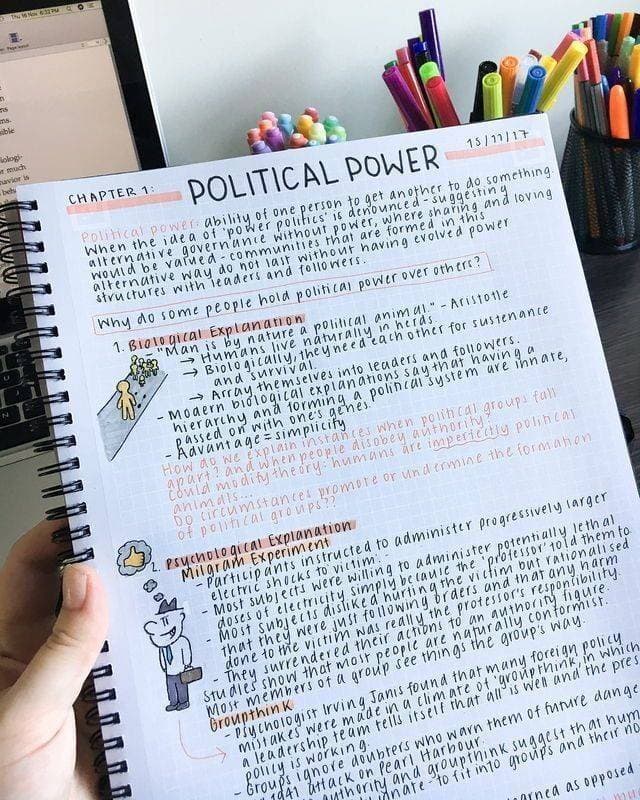 Thu 16 Nov 6:32 PM
CHAPTER 1: POLITICAL POWER 15/11/17
Political power: ability of one person to get another to do something.
When the idea of 'power politics' is denounced - suggesting
alternative governance without power, where sharing and loving
would be valued - communities that are formed in this
alternative way do not last without having evolved power
structures with leaders and followers.
Why do some people hold political power over others?
1. Biological Explanation
- "Man is by nature a political animal" - Aristotle
→ Humans live naturally in herds.
→ Biologically, they need each other for sustenance
and survival.
→ Array themselves into leaders and followers.
- Modern biological explanations say that having a
hierarchy and forming a political system are innate,
passed on with one's genes.
- Advantage = simplicity
How do we explain instances when political groups fall
apart? and when people disobey authority?
Could modify theory: humans are imperfectly political
animals...
Do circumstances promote or undermine the formation
of political groups??
2. Psychological Explanation
Milgram Experiment
- Participants instructed to administer progressively larger
electric shocks to victim.
- Most subjects were willing to administer potentially lethal
doses of electricity simply because the 'professor' told them to
- Most subjects disliked hurting the victim but rationalised
that they were just following orders and that any harm
done to the victim was really the professor's responsibility.
- They surrendered their actions to an authority figure.
Studies show that most people are naturally conformist.
Most members of a group see things the group's way.
Groupthink
- Psychologist Irving Janis found that many foreign policy
mistakes were made in a climate of 'groupthink', in which
a leadership team tells itself that all is well and the pres
policy is working.
- Groups ignore doubters who warn them of future dang
1941 attack on Pearl Harbour.
authority and groupthink suggest that hum
innate - to fit into groups and their no
earned as opposed